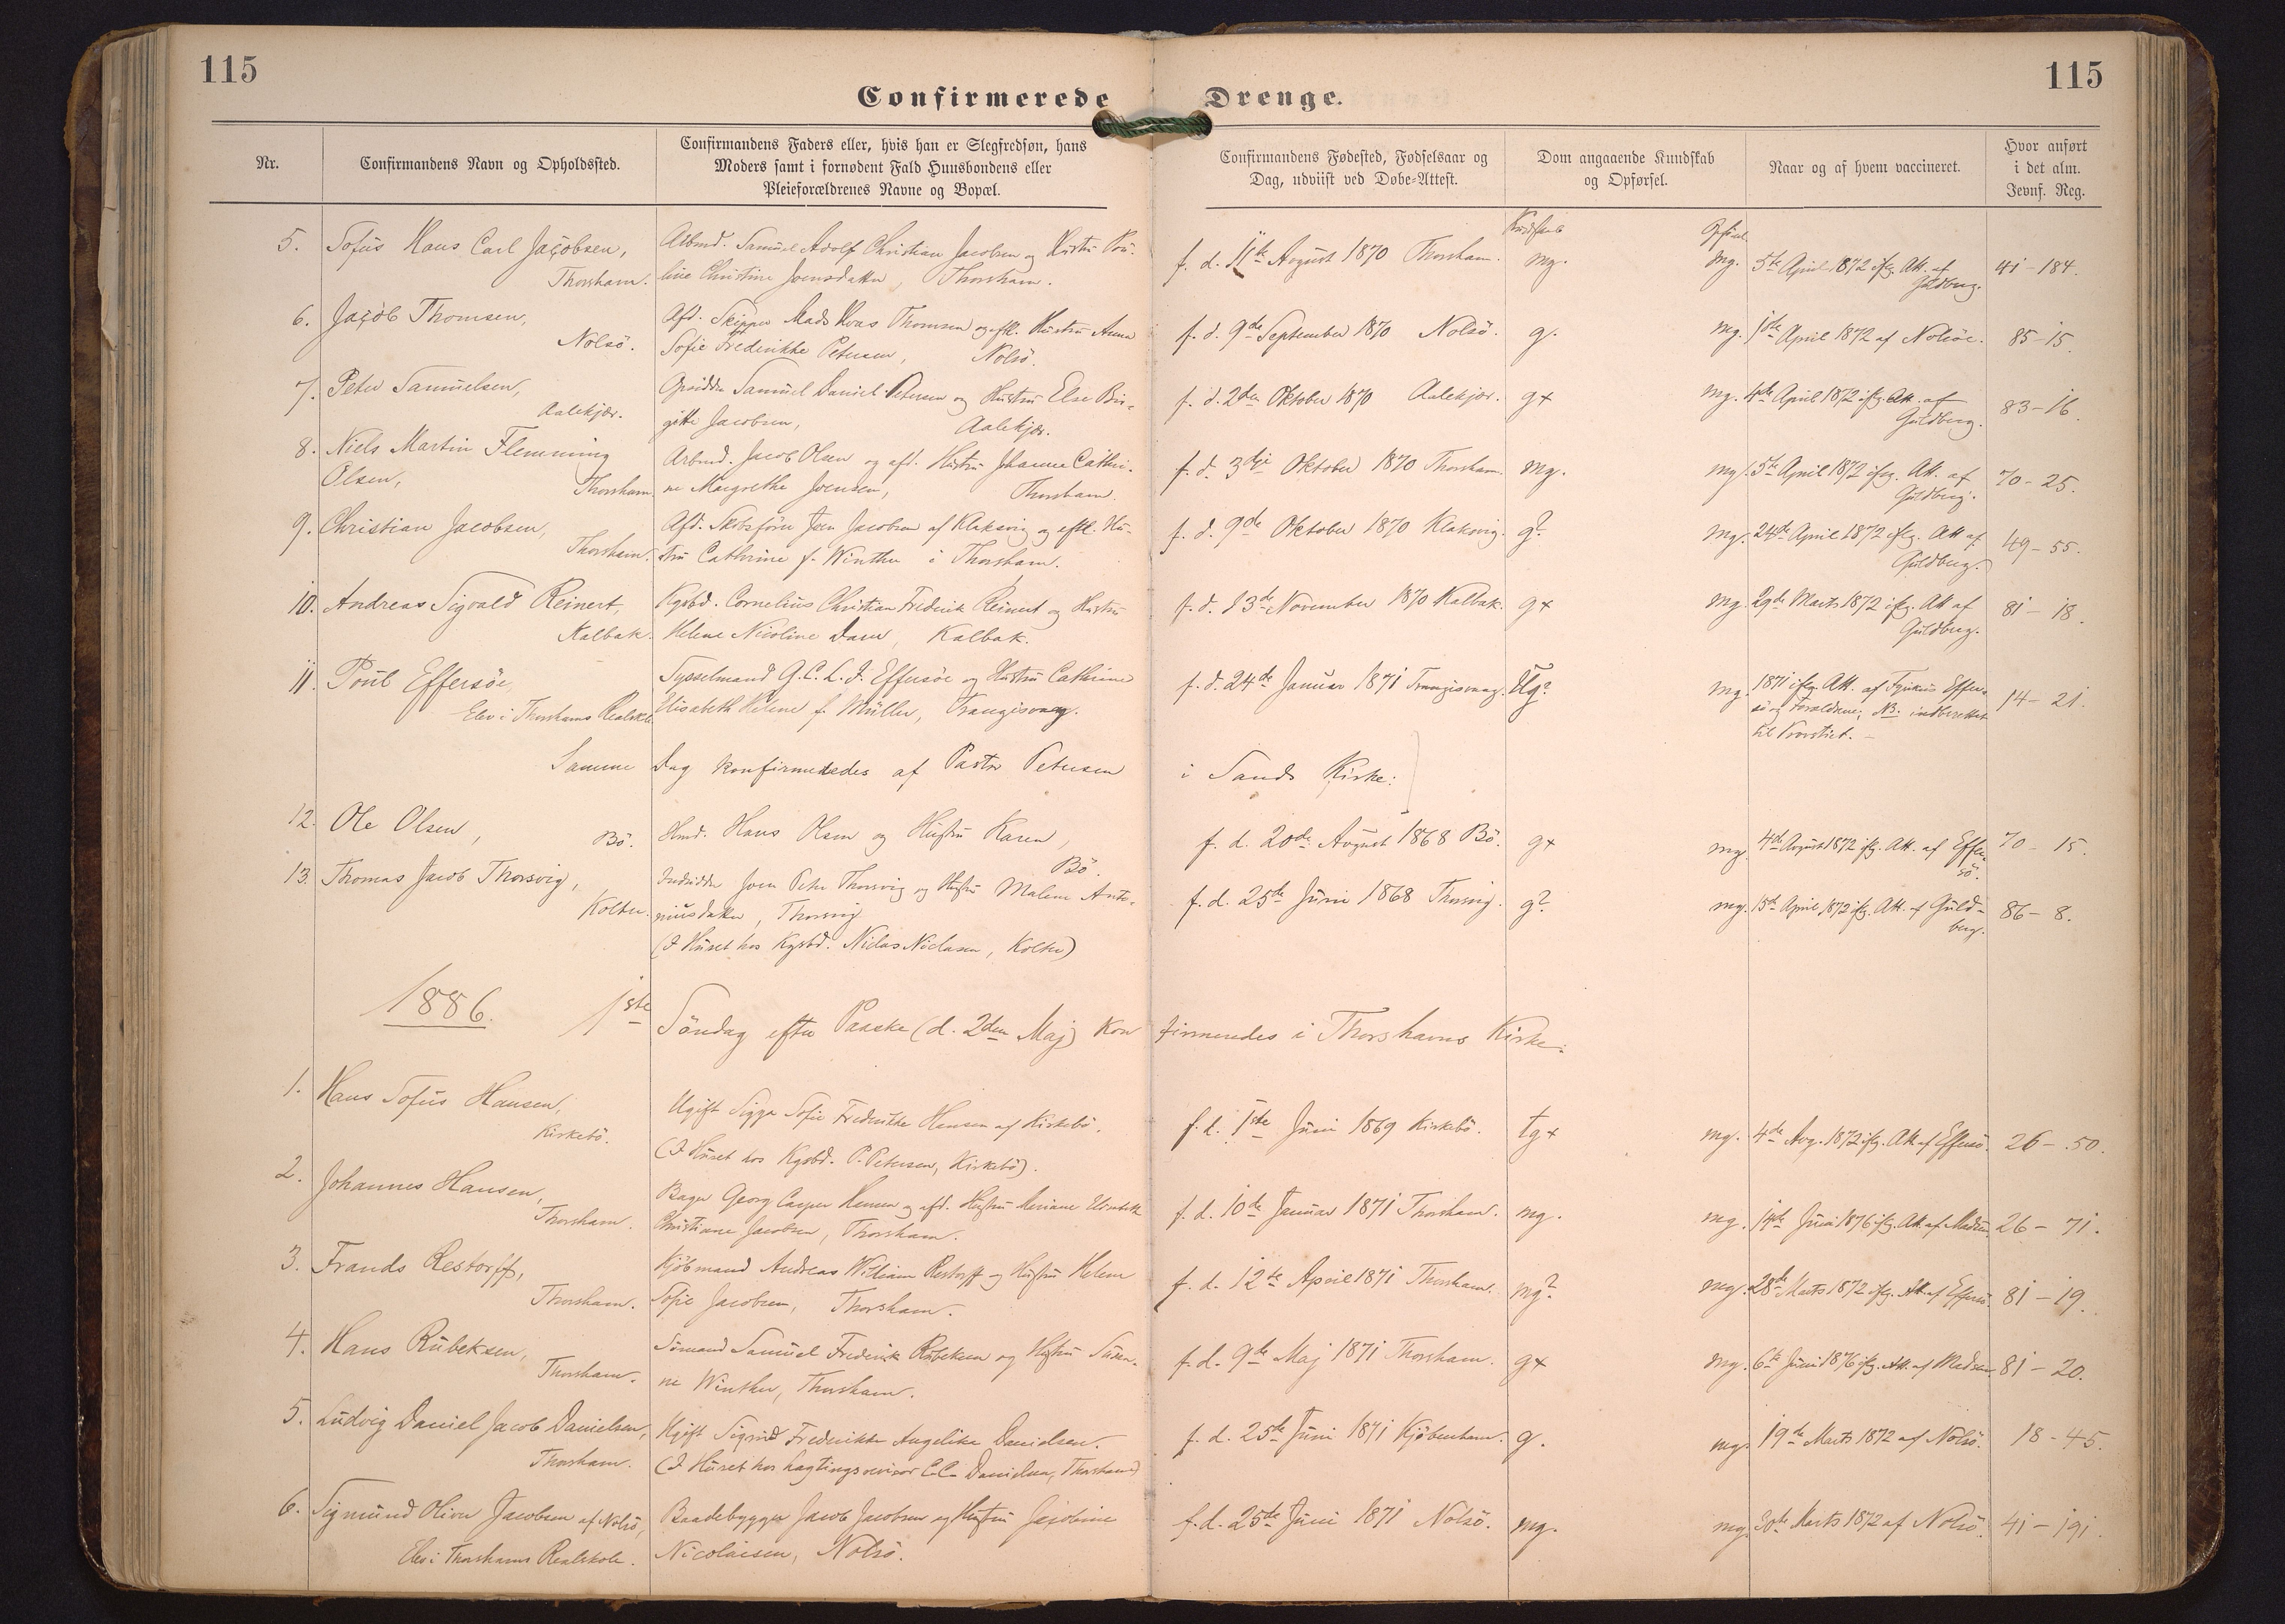 115
115
Confirmerede Drenge.
Nr.
Confirmandens Navn og Opholdssted.
Confirmandens Faders eller, hvis han er Slegfredsøn, hans
Moders samt i fornødent Fald Huusbondens eller
Pleieforældrenes Navne og Bopæl.
Confirmandens Fødested, Fødselsaar og
Dag, udviist ved Døbe-Attest.
Dom angaaende Kundskab
og Opførsel.
Naar og af hvem vaccineret.
Hvor anført
i det alm.
Jevnf. Reg.
5. Sofus Hans Carl Jacobsen, Arbmd. Samuel Adolf Christian Jacobsen og Hustru Pou- f. d. 11te August 1870 Thorshavn. mg. mg. 5te April 1872 iflg. Att. af 41-184.
Thorshavn. line Christine Joensdatter, Thorshavn. Guldberg.
6. Jacob Thomsen, Afd. Skipper Mads Thomsen og eftl. Hustru Anna f. d. 9de September 1870 Nolsö. g. mg. April 1872 af Nolsöe. 85-15.
Nolsö. Sofie Frederikke Petersen, Nolsö.
7. Peter Samuelsen, Opsidder Samuel Daniel Petersen og Hustru Else Bir- f. d. 2den Oktober 1870 Aalekjær. g+ mg. 4de April 1872 iflg. Att. af 83-16.
Aalekjær. gitte Jacobsen, Aalekjær. Guldberg.
8. Niels Martin Flemming Arbmd. Jacob Olsen og afd. Hustru Johanne Cathri- f. d. 3die Oktober 1870 Thorshavn. mg. mg. 5te April 1872 iflg. Att. af 70-25.
Olsen, Thorshavn. ne Margrethe Joensen, Thorshavn. Guldberg.
9. Christian Jacobsen, Afd. Skibsfører Joen Jacobsen af Klaksvig og eftl. Hu- f. d. 9de Oktober 1870 Klaksvig. g? mg. 24de April 1872 iflg. Att af 49-55.
Thorshavn. stru Cathrine f. Winther i Thorshavn. Guldberg.
10. Andreas Sigvald Reinert, Kgsbd. Cornelius Christian Frederik Reinert og Hustru f. d. 13de November 1870 Kalbak. g+ mg. 29de Marts 1872 iflg. Att af 81-18.
Kalbak. Helene Nicoline Dam, Kalbak. Guldberg.
11. Poul Effersöe, Sysselmand G. C. L. J. Effersöe og Hustru Cathrine f. d. 24de Januar 1871 Trangisvaag. Ug? mg. 1871 iflg. Att. af Fysikus Effer- 14-21.
Elev i Thorshavns Realskole Elisabeth Helene f. Müller, Trangisvaag. sö og Forældrene; NB. indberettet
til Provstiet.
Samme Dag konfirmeredes af Pastor Petersen i Sands Kirke:
12. Ole Olsen, Bö. Hmd. Hans Olsen og Hustru Karen, f. d. 20de August 1868 Bö. g+ mg. 4de August 1872 iflg. Att. af Effer- 70-15.
Bö. sö.
13. Thomas Jacob Thorsvig, Indsidder Joen Peter Thorsvig og Hustru Malene Anto- f. d. 25de Juni 1868 Thorsvig. g? mg. 15de April 1872 iflg. Att. af Guld- 86-8.
Kolter. niusdatter, Thorsvig berg.
(I Huset hos Kgsbd. Niclas Niclasen, Kolter)
1886. 1ste Söndag efter Paaske (d. 2den Maj) konfirmeredes i Thorshavns Kirke:
1. Hans Sofus Hansen, Ugift Sigga Sofie Frederikke Hansen af Kirkebö. f. d. 1ste Juni 1869 Kirkebö. tg+ mg. 4de Aug. 1872 iflg. Att af Effersö. 26-50.
Kirkebö. (I Huset hos Kgsbd. P. Petersen, Kirkebö).
2. Johannes Hansen, Bager Georg Casper Hansen og afd. Hustru Mariane Elisabeth f. d. 10de Januar 1871 Thorshavn. mg. mg. Juni 1876 iflg. Att. af Madsen. 26-71.
Thorshavn. Christiane Jacobsen, Thorshavn.
3. Frands Restorff, Kjöbmand Andreas William Restorff og Hustru Helene f. d. 12te April 1871 Thorshavn. mg? mg. 28de Marts 1872 iflg. Att. af Effersö. 81-19.
Thorshavn. Sofie Jacobsen, Thorshavn.
4. Hans Rubeksen, Sömand Samuel Frederik Rubeksen og Hustru Susan- f. d. 9de Maj 1871 Thorshavn. g+ mg. 6te Juni 1876 iflg. Att. af Madsen. 81-20.
Thorshavn. ne Winther, Thorshavn.
5. Ludvig Daniel Jacob Danielsen, Ugift Sigrid Frederikke Angelika Danielsen. f. d. 25de Juni 1871 Kjöbenhavn. g. mg. 19de Marts 1872 af Nolsö. 18-45.
Thorshavn. (I Huset hos Lagtingsrevisor C. C. Danielsen, Thorshavn)
6. Sigmund Oliver Jacobsen af Nolsö, Baadebygger Jacob Jacobsen og Hustru Jacobine f. d. 25de Juni 1871 Nolsö. mg. mg. 30te Marts 1872 af Nolsö. 41-191.
Elev i Thorshavns Realskole. Nicolaisen, Nolsö.